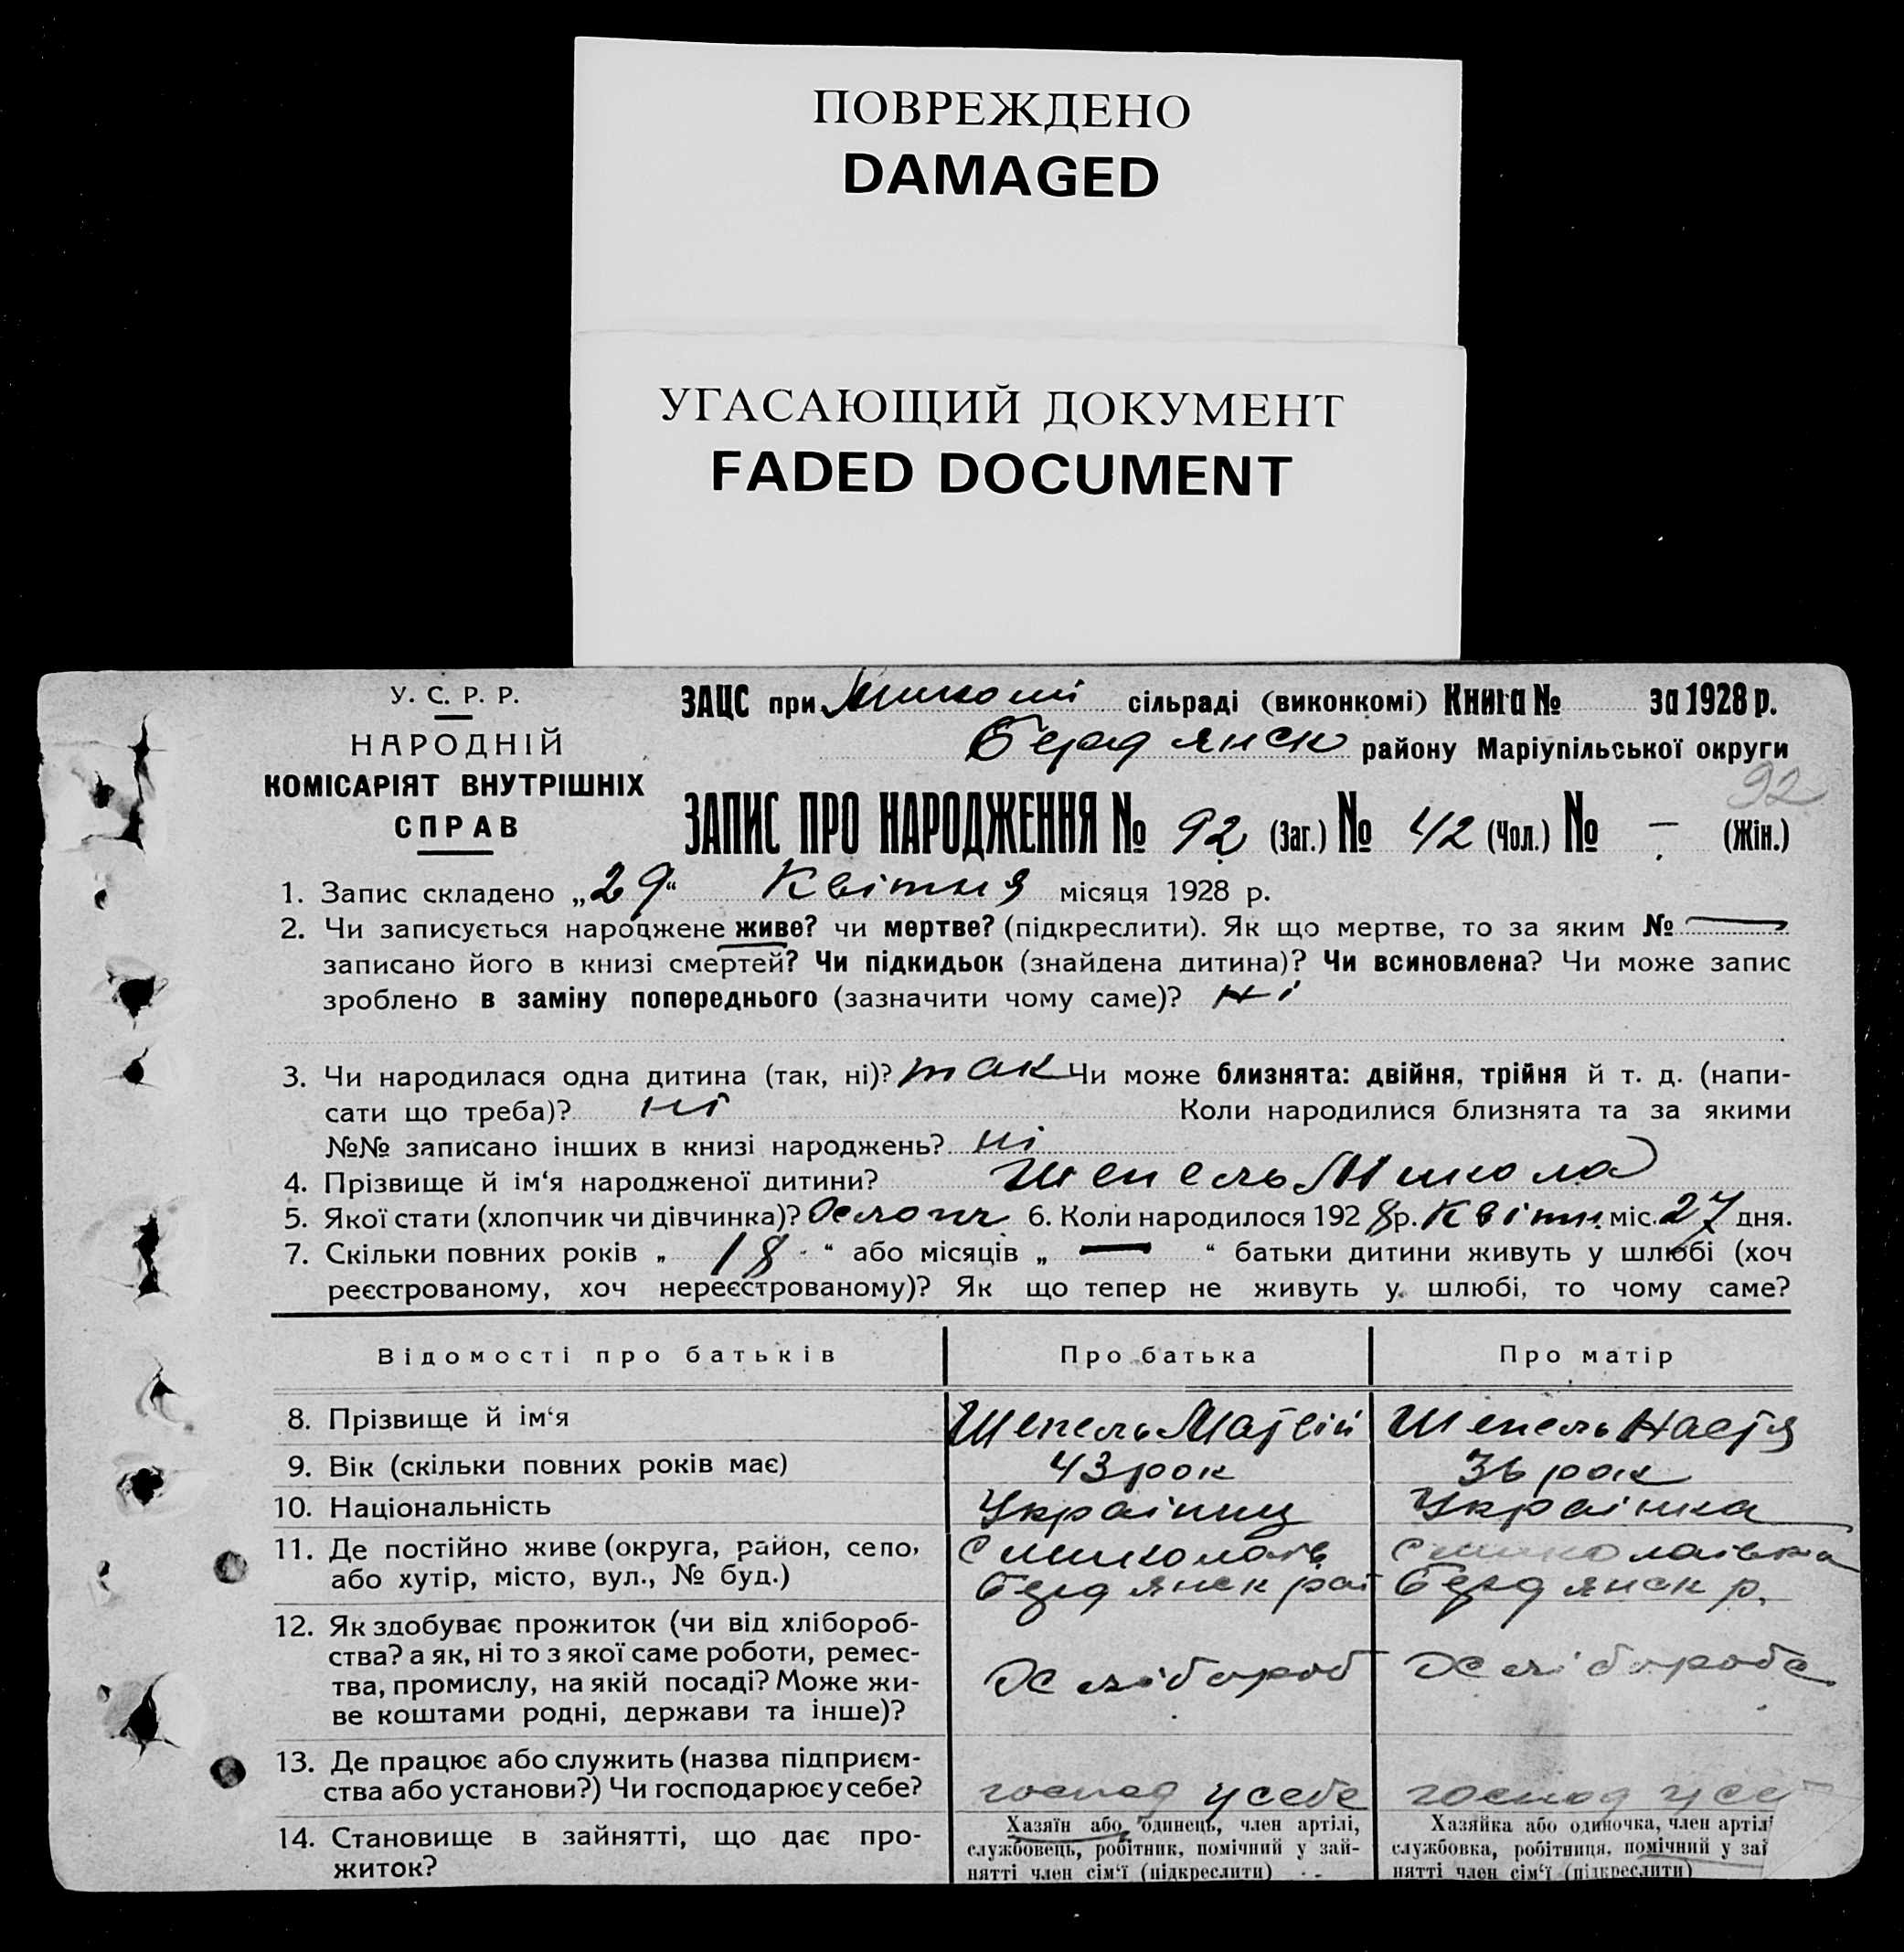 ПОВРЕЖДЕНО
DAMAGED
УГАСАЮЩИЙ ДОКУМЕНТ
FADED DOCUMENT
У. С. Р. Р.
НАРОДНІЙ
КОМІСАРІЯТ ВНУТРІШНІХ
СПРАВ
ЗАЦС при сільраді (виконкомі) Книга № за 1928 р.
Бердянск району Маріупільської округи
92
ЗАПИС ПРО НАРОДЖЕННЯ № 92 (Заг.) № 42 (Чол.) № — (Жін.)
1. Запис складено „29“ Квітня місяця 1928 р.
2. Чи записується народжене живе? чи мертве? (підкреслити). Як що мертве, то за яким № —
записано його в книзі смертей? Чи підкидьок (знайдена дитина)? Чи всиновлена? Чи може запис
зроблено в заміну попереднього (зазначити чому саме)? ні
3. Чи народилася одна дитина (так, ні)? так Чи може близнята: двійня, трійня й т. д. (напи-
сати що треба)? ні Коли народилися близнята та за якими
№№ записано інших в книзі народжень? ні
4. Прізвище й ім‘я народженої дитини? Шепель Микола
5. Якої стати (хлопчик чи дівчинка)? Хлопч 6. Коли народилося 1928 р. Квітн. міс. 27 дня.
7. Скільки повних років „ 18 “ або місяців „ — “ батьки дитини живуть у шлюбі (хоч
реєстрованому, хоч нереєстрованому)? Як що тепер не живуть у шлюбі, то чому саме?
Відомості про батьків Про батька Про матір
8. Прізвище й ім‘я Шепель Матвій Шепель Настя
9. Вік (скільки повних років має) 43 рок 36 рок
10. Національність Українц Українка
11. Де постійно живе (округа, район, село, с миколаів с миколаівка
або хутір, місто, вул., № буд.) Бердянск рай Бердянск р.
12. Як здобуває прожиток (чи від хлібороб-
ства? а як, ні то з якої саме роботи, ремес-
тва, промислу, на якій посаді? Може жи- Хлібороб Хлібороб
ве коштами родні, держави та інше)?
13. Де працює або служить (назва підприєм-
ства або установи?) Чи господарює у себе? господ у себе господ у себ
14. Становище в зайнятті, що дає про- Хазяїн або одинець, член артілі, Хазяйка або одиночка, член артіл
житок? службовець, робітник, помічний у зай- службовка, робітниця, помічний у зай
нятті член сім‘ї (підкреслити) нятті член сім‘ї (підкреслити)